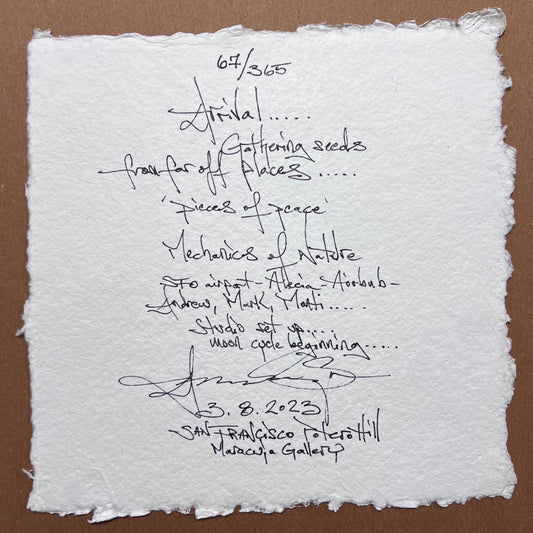 67/365
Arrival.....
Gathering seeds
from far off places.....
'pieces of peace'
Mechanics of Nature
SFO airport - Alecia - Airbnb -
Andrew, Mark, Monti.....
Studio set up....
moon cycle beginning.....
3.8.2023
SAN FRANCISCO Potero Hill
Maracuja Gallery